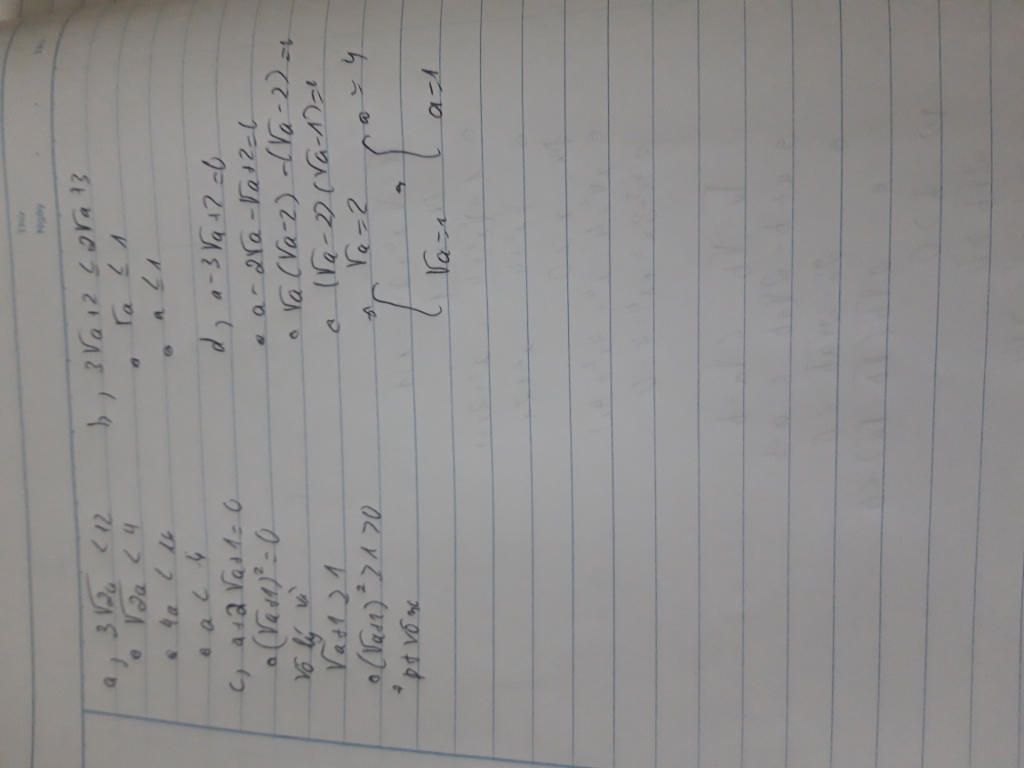 Thứ
Ngày
No.
a, 3√2a < 12
• √2a < 4
• 4a < 16
• a < 4
b, 3√a+2 ≤ 2√a+3
• √a ≤ 1
• a ≤ 1
c, a+2√a+1=0
• (√a+1)²=0
Vô lý vì
√a+1 ≥ 1
• (√a+1)² ≥ 1 > 0
pt vô n
d, a-3√a+2=0
• a-2√a-√a+2=0
• √a(√a-2)-(√a-2)=0
• (√a-2)(√a-1)=0
√a=2 a=4
√a=1 a=1